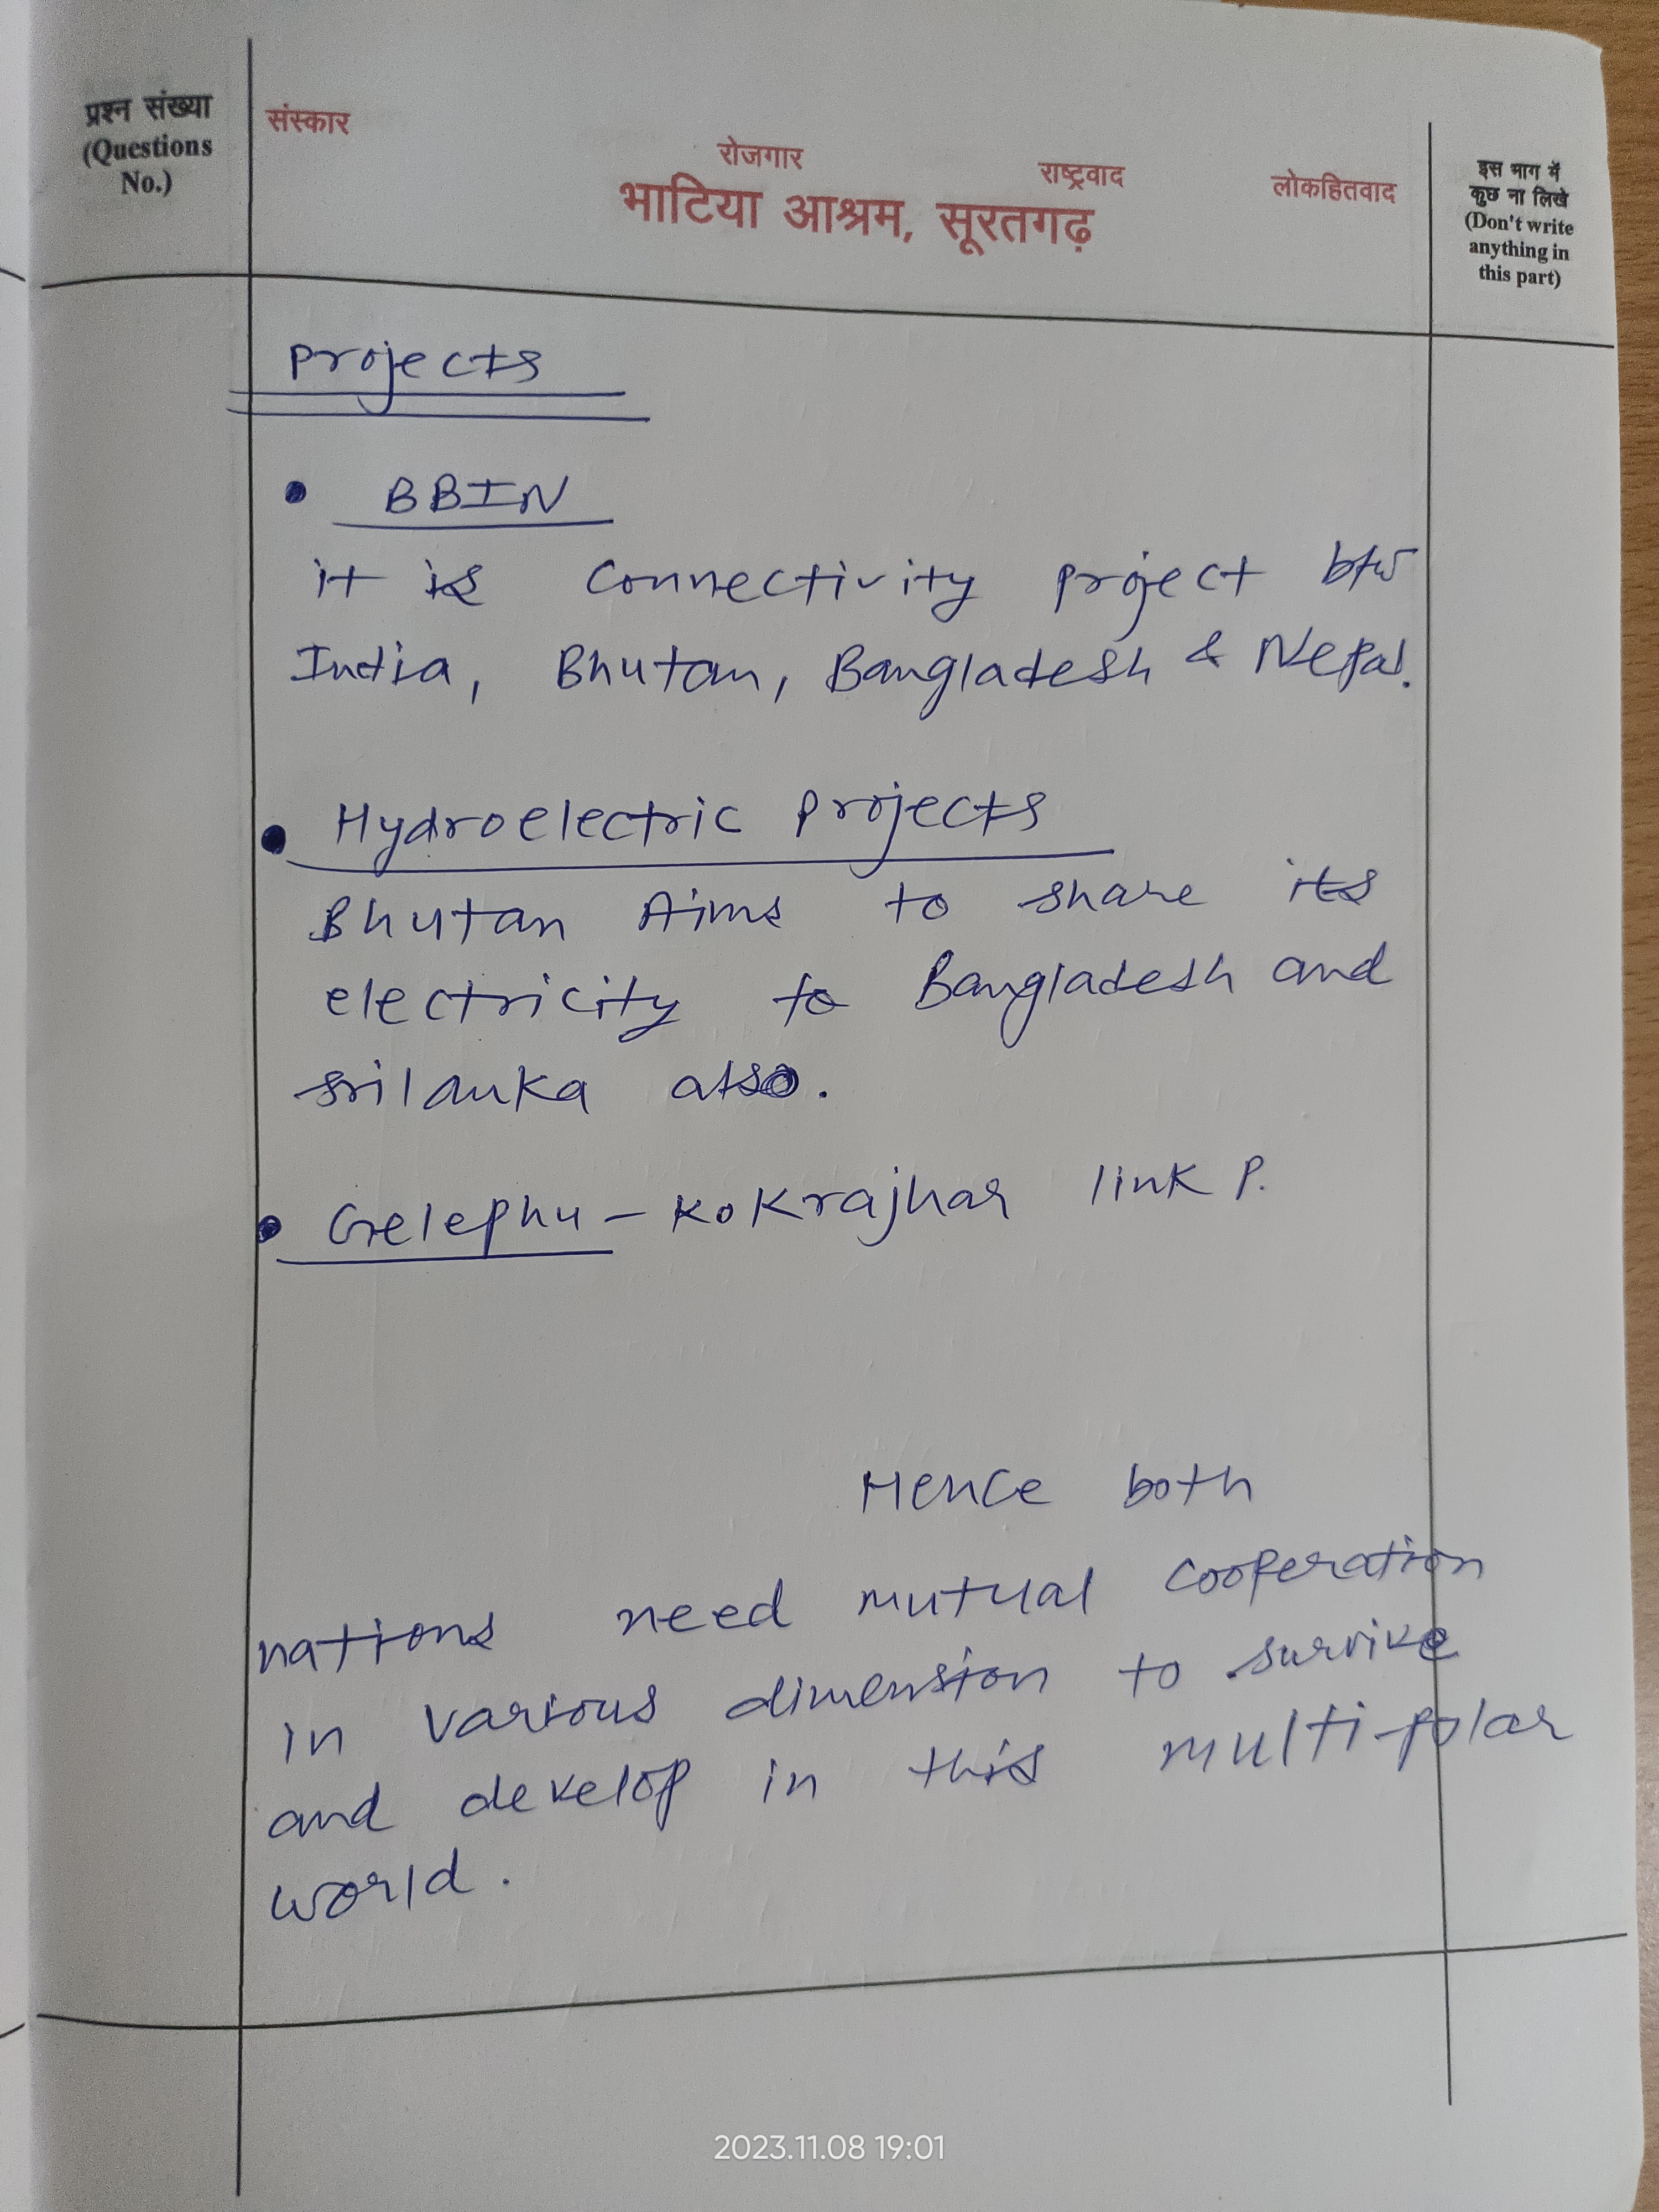 प्रश्न संख्या
(Questions
No.)
संस्कार
रोजगार
राष्ट्रवाद
लोकहितवाद
भाटिया आश्रम, सूरतगढ़
इस भाग में
कुछ ना लिखे
(Don't write
anything in
this part)
Projects
• BBIN
it is connectivity project btw
India, Bhutan, Bangladesh & Nepal.
• Hydroelectric projects
Bhutan Aims to share its
electricity to Bangladesh and
srilanka also.
• Gelephu - Kokrajhar link P.
Hence both
nations need mutual cooperation
in various dimension to survive
and develop in this multi-polar
world.
2023.11.08 19:01